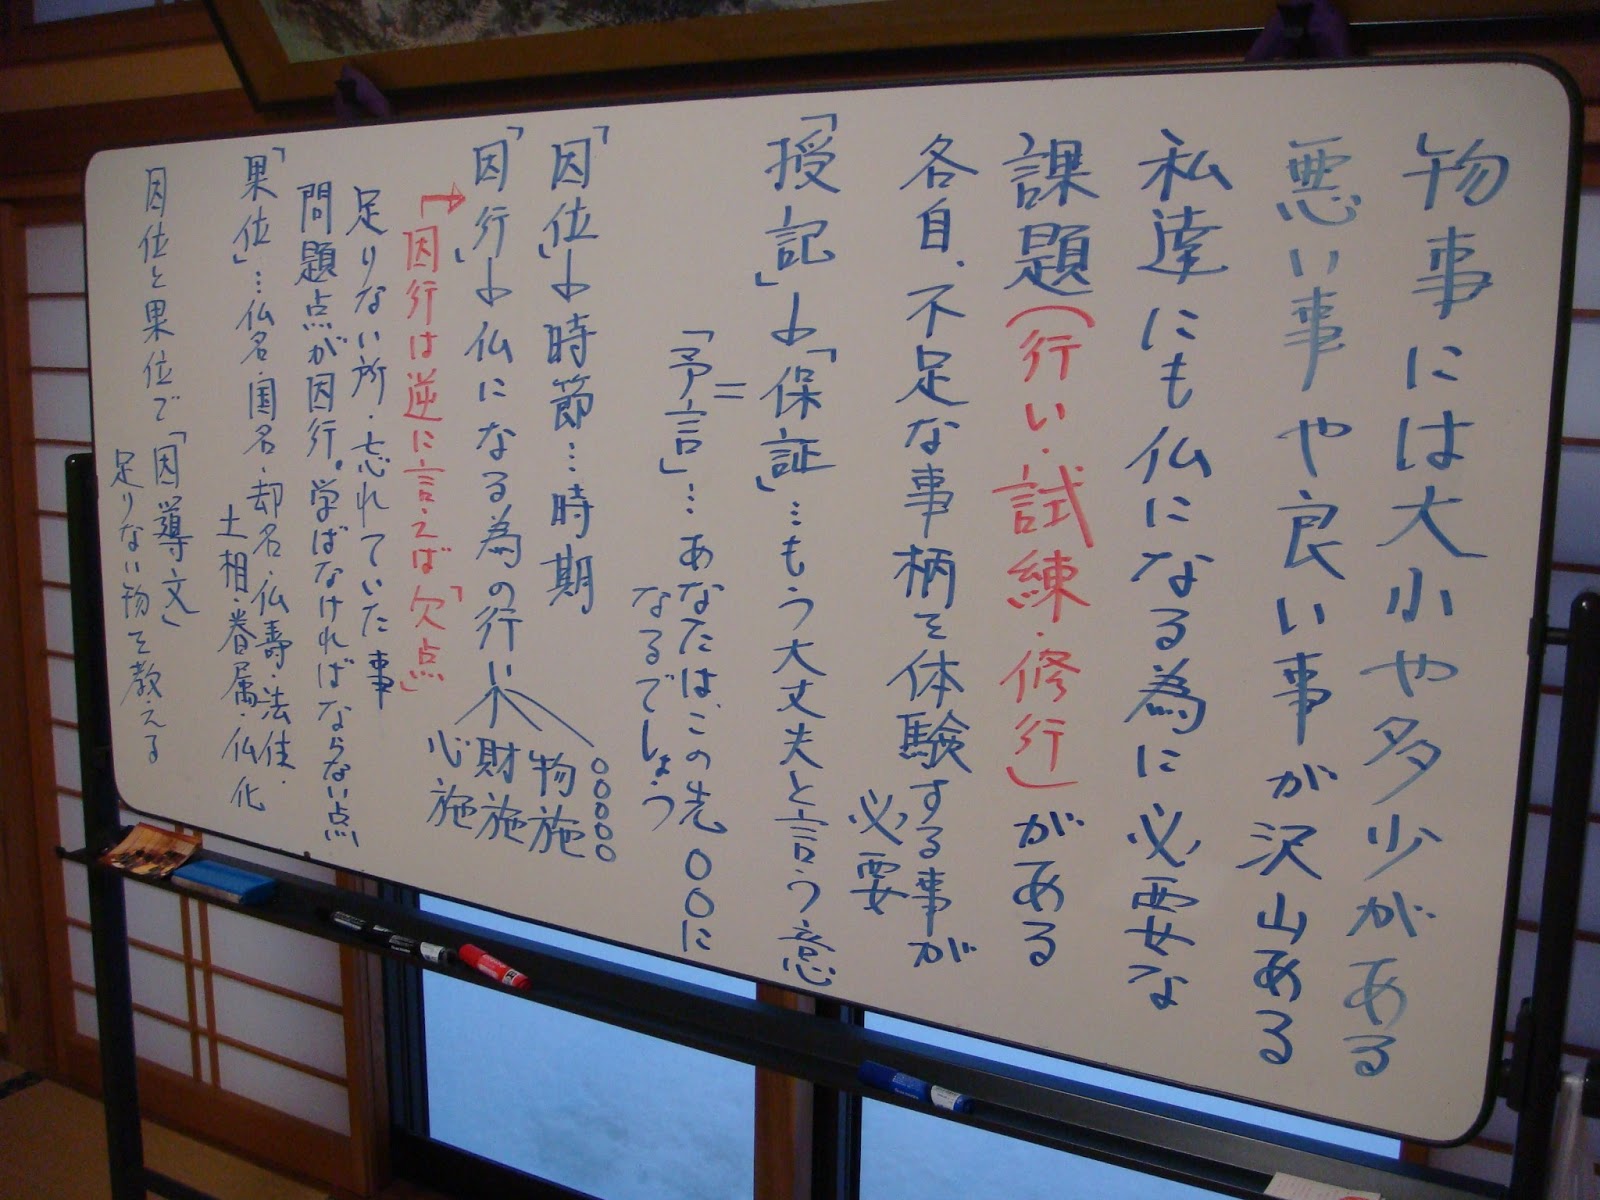 物事には大小や多少がある
悪い事や良い事が沢山ある
私達にも仏になる為に必要な
課題(行い・試練・修行)がある
各自、不足な事柄を体験する事が
必要
「授記」→「保証」…もう大丈夫と言う意
=
「予言」…あなたは、この先〇〇に
なるでしょう
「因位」→時節…時期
「因行」→仏になる為の行い
〇〇〇〇〇
物施
財施
心施
「因行は逆に言えば「欠点」
足りない所・忘れていた事
問題点が因行。学ばなければならない点
「果位」…仏名・国名・却名・仏壽・法住・
土相・眷属・仏化
因位と果位で「因導文」
足りない物を教える